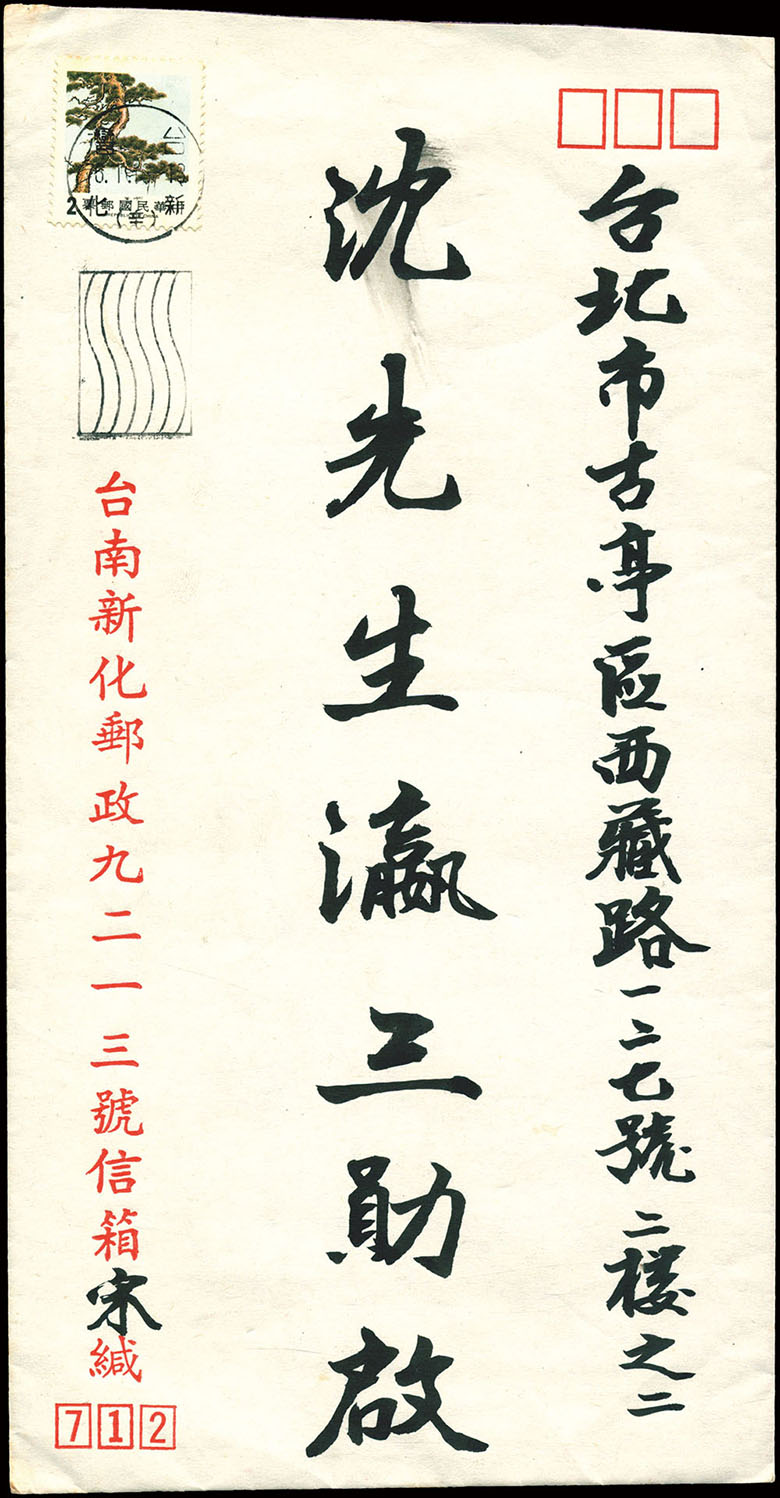 台北市古亭區西藏路一二七號二楼之二
沈先生瀛三勛啟
2
中華民國郵票
台南新化郵政九二一三號信箱宋緘
712